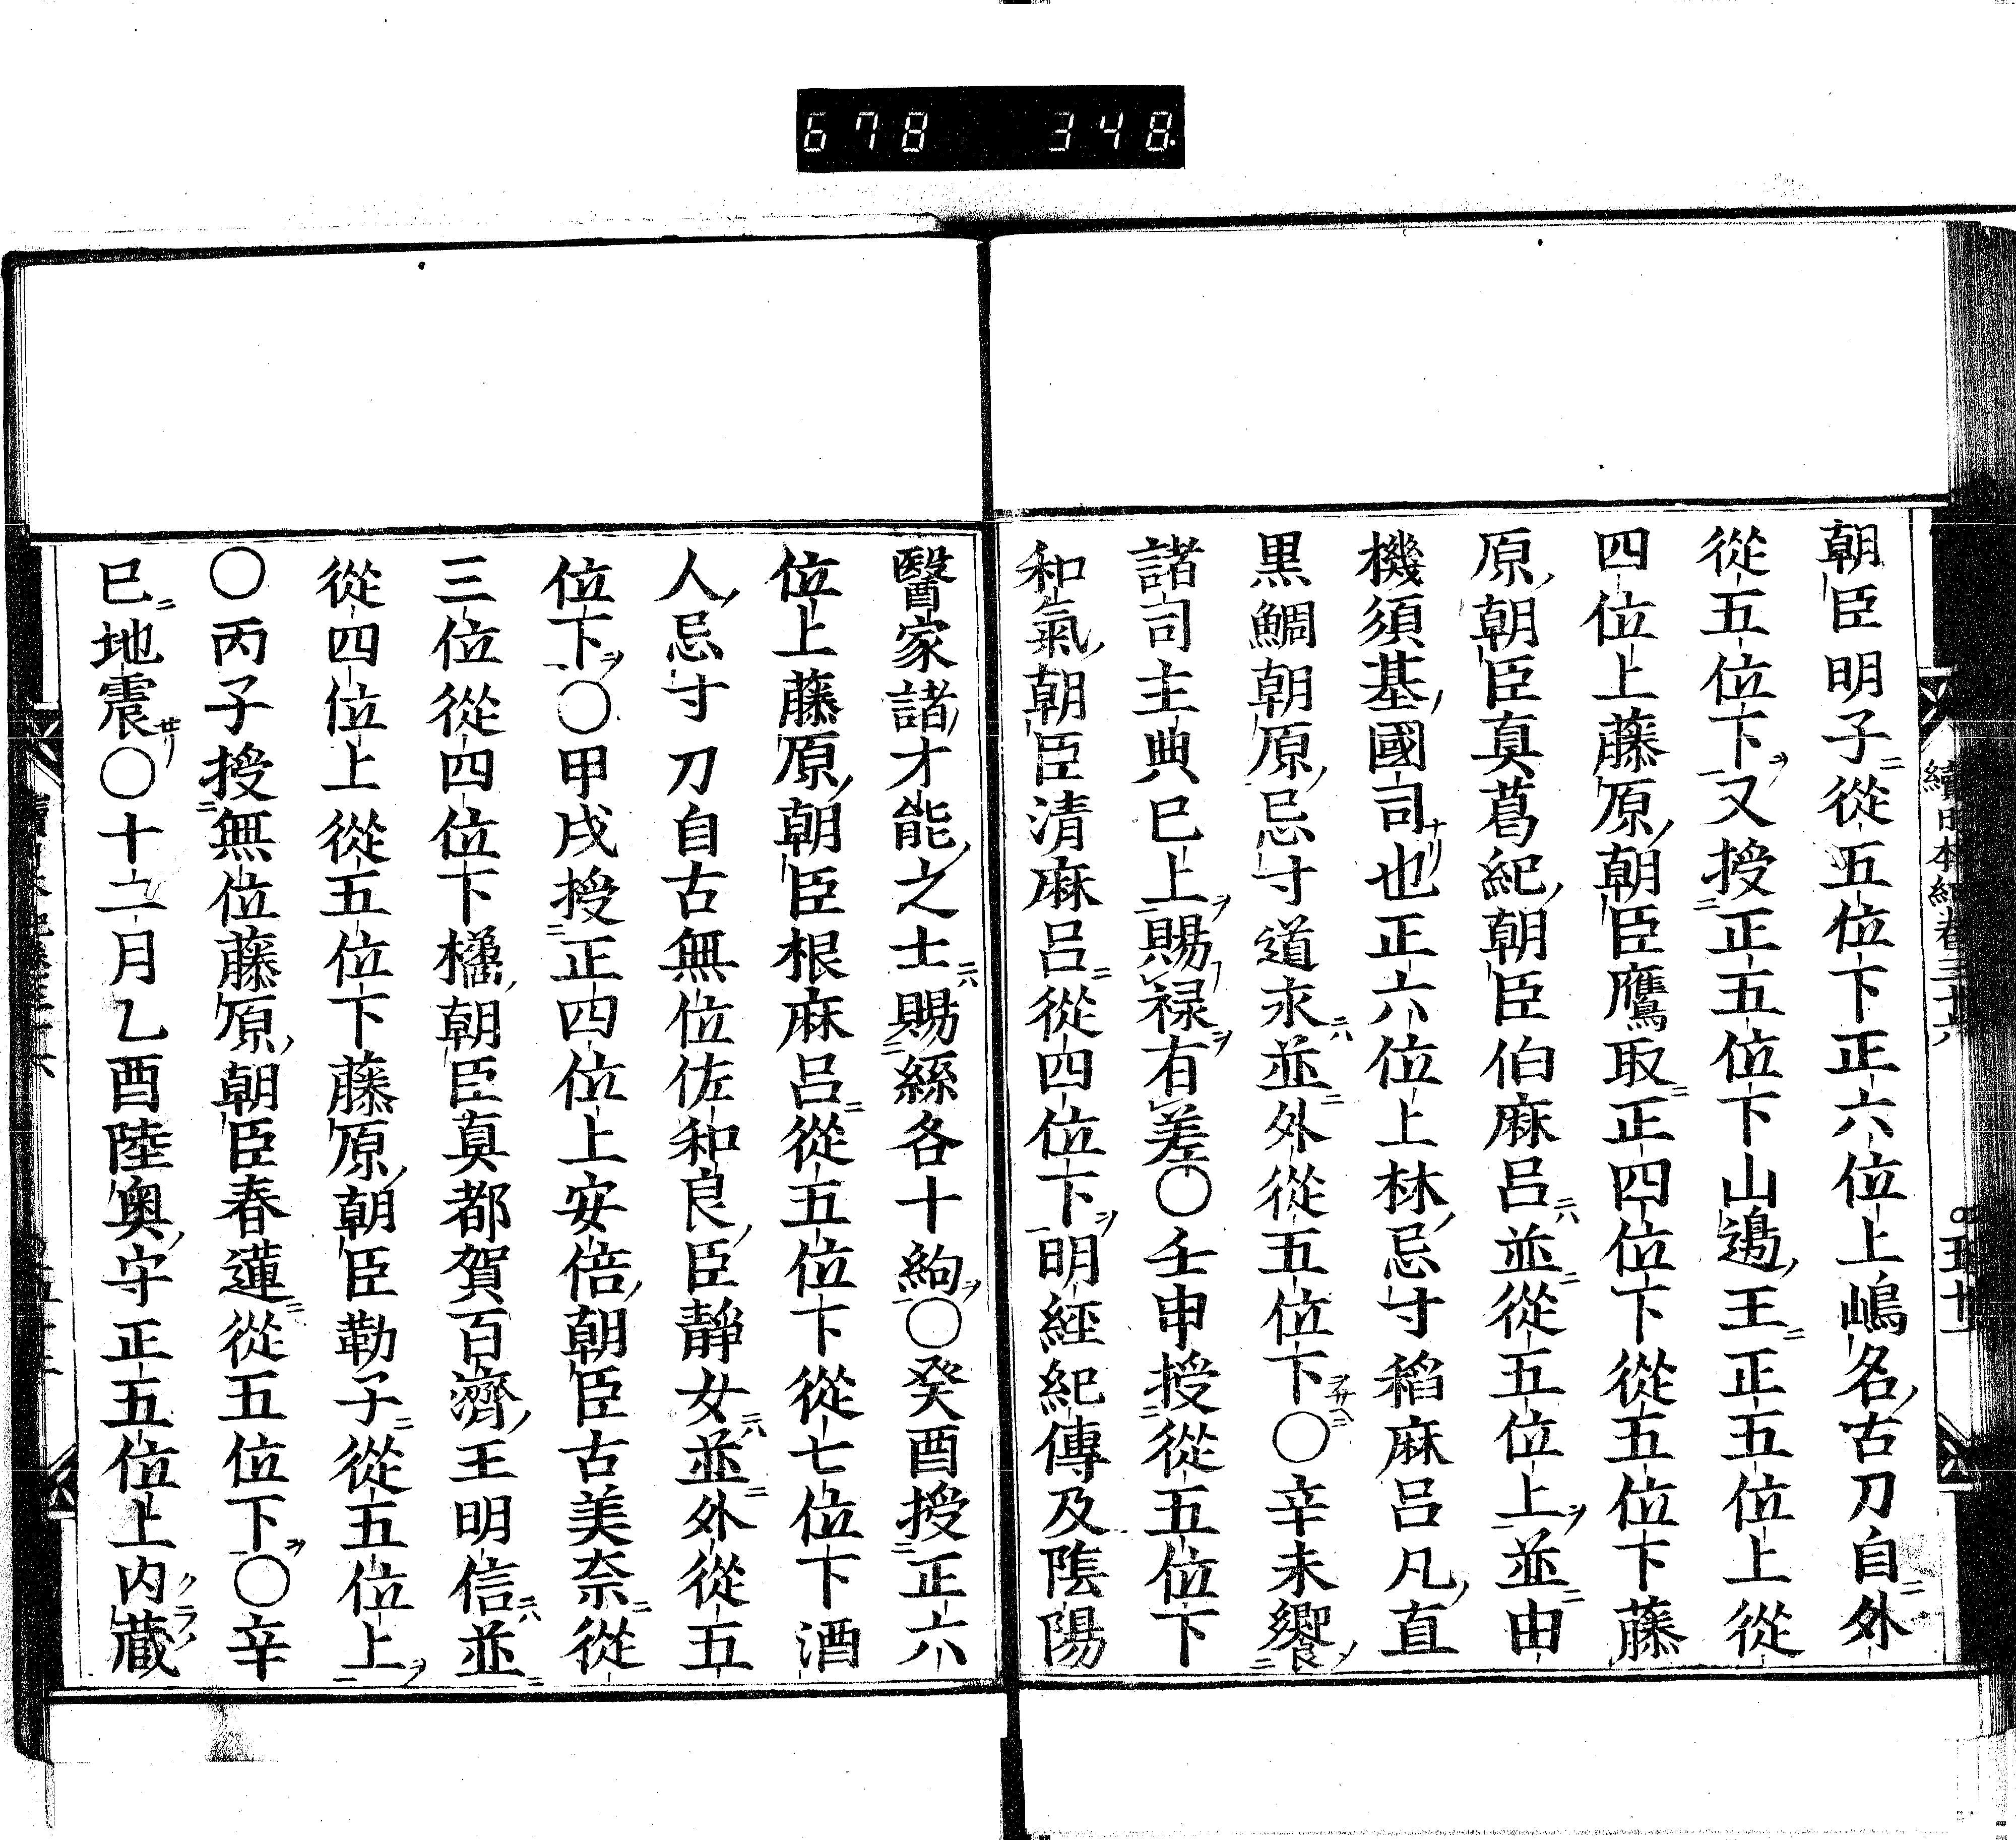 678 348
續日本紀卷三十六
五十一
朝臣明子從五位下正六位上嶋名古刀自外
從五位下又授正五位下山邊王正五位上從
四位上藤原朝臣鷹取正四位下從五位下藤
原朝臣真葛紀朝臣伯麻呂並從五位上並由
機須基國司也正六位上林忌寸稻麻呂凡直
黒鯛朝原忌寸道永並外從五位下〇辛未饗
諸司主典已上賜禄有差〇壬申授從五位下
和氣朝臣清麻呂從四位下明經紀傳及陰陽
醫家諸才能之士賜絲各十絇〇癸酉授正六
位上藤原朝臣根麻呂從五位下從七位下酒
人忌寸刀自古無位佐和良臣靜女並外從五
位下〇甲戌授正四位上安倍朝臣古美奈從
三位從四位下橘朝臣真都賀百濟王明信並
從四位上從五位下藤原朝臣勒子從五位上
〇丙子授無位藤原朝臣春蓮從五位下〇辛
巳地震〇十二月乙酉陸奥守正五位上内藏